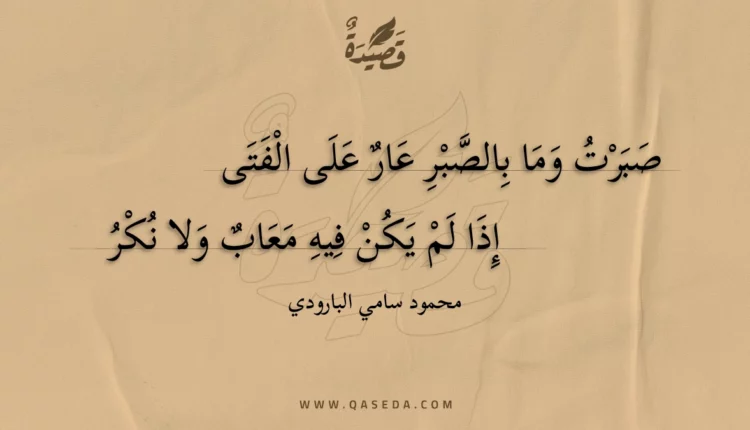 قَصِيدَةٌ
صَبَرْتُ وَمَا بِالصَّبْرِ عَارٌ عَلَى الْفَتَى
إِذَا لَمْ يَكُنْ فِيهِ مَعَابٌ وَلا نُكْرُ
محمود سامي البارودي
WWW.QASEDA.COM